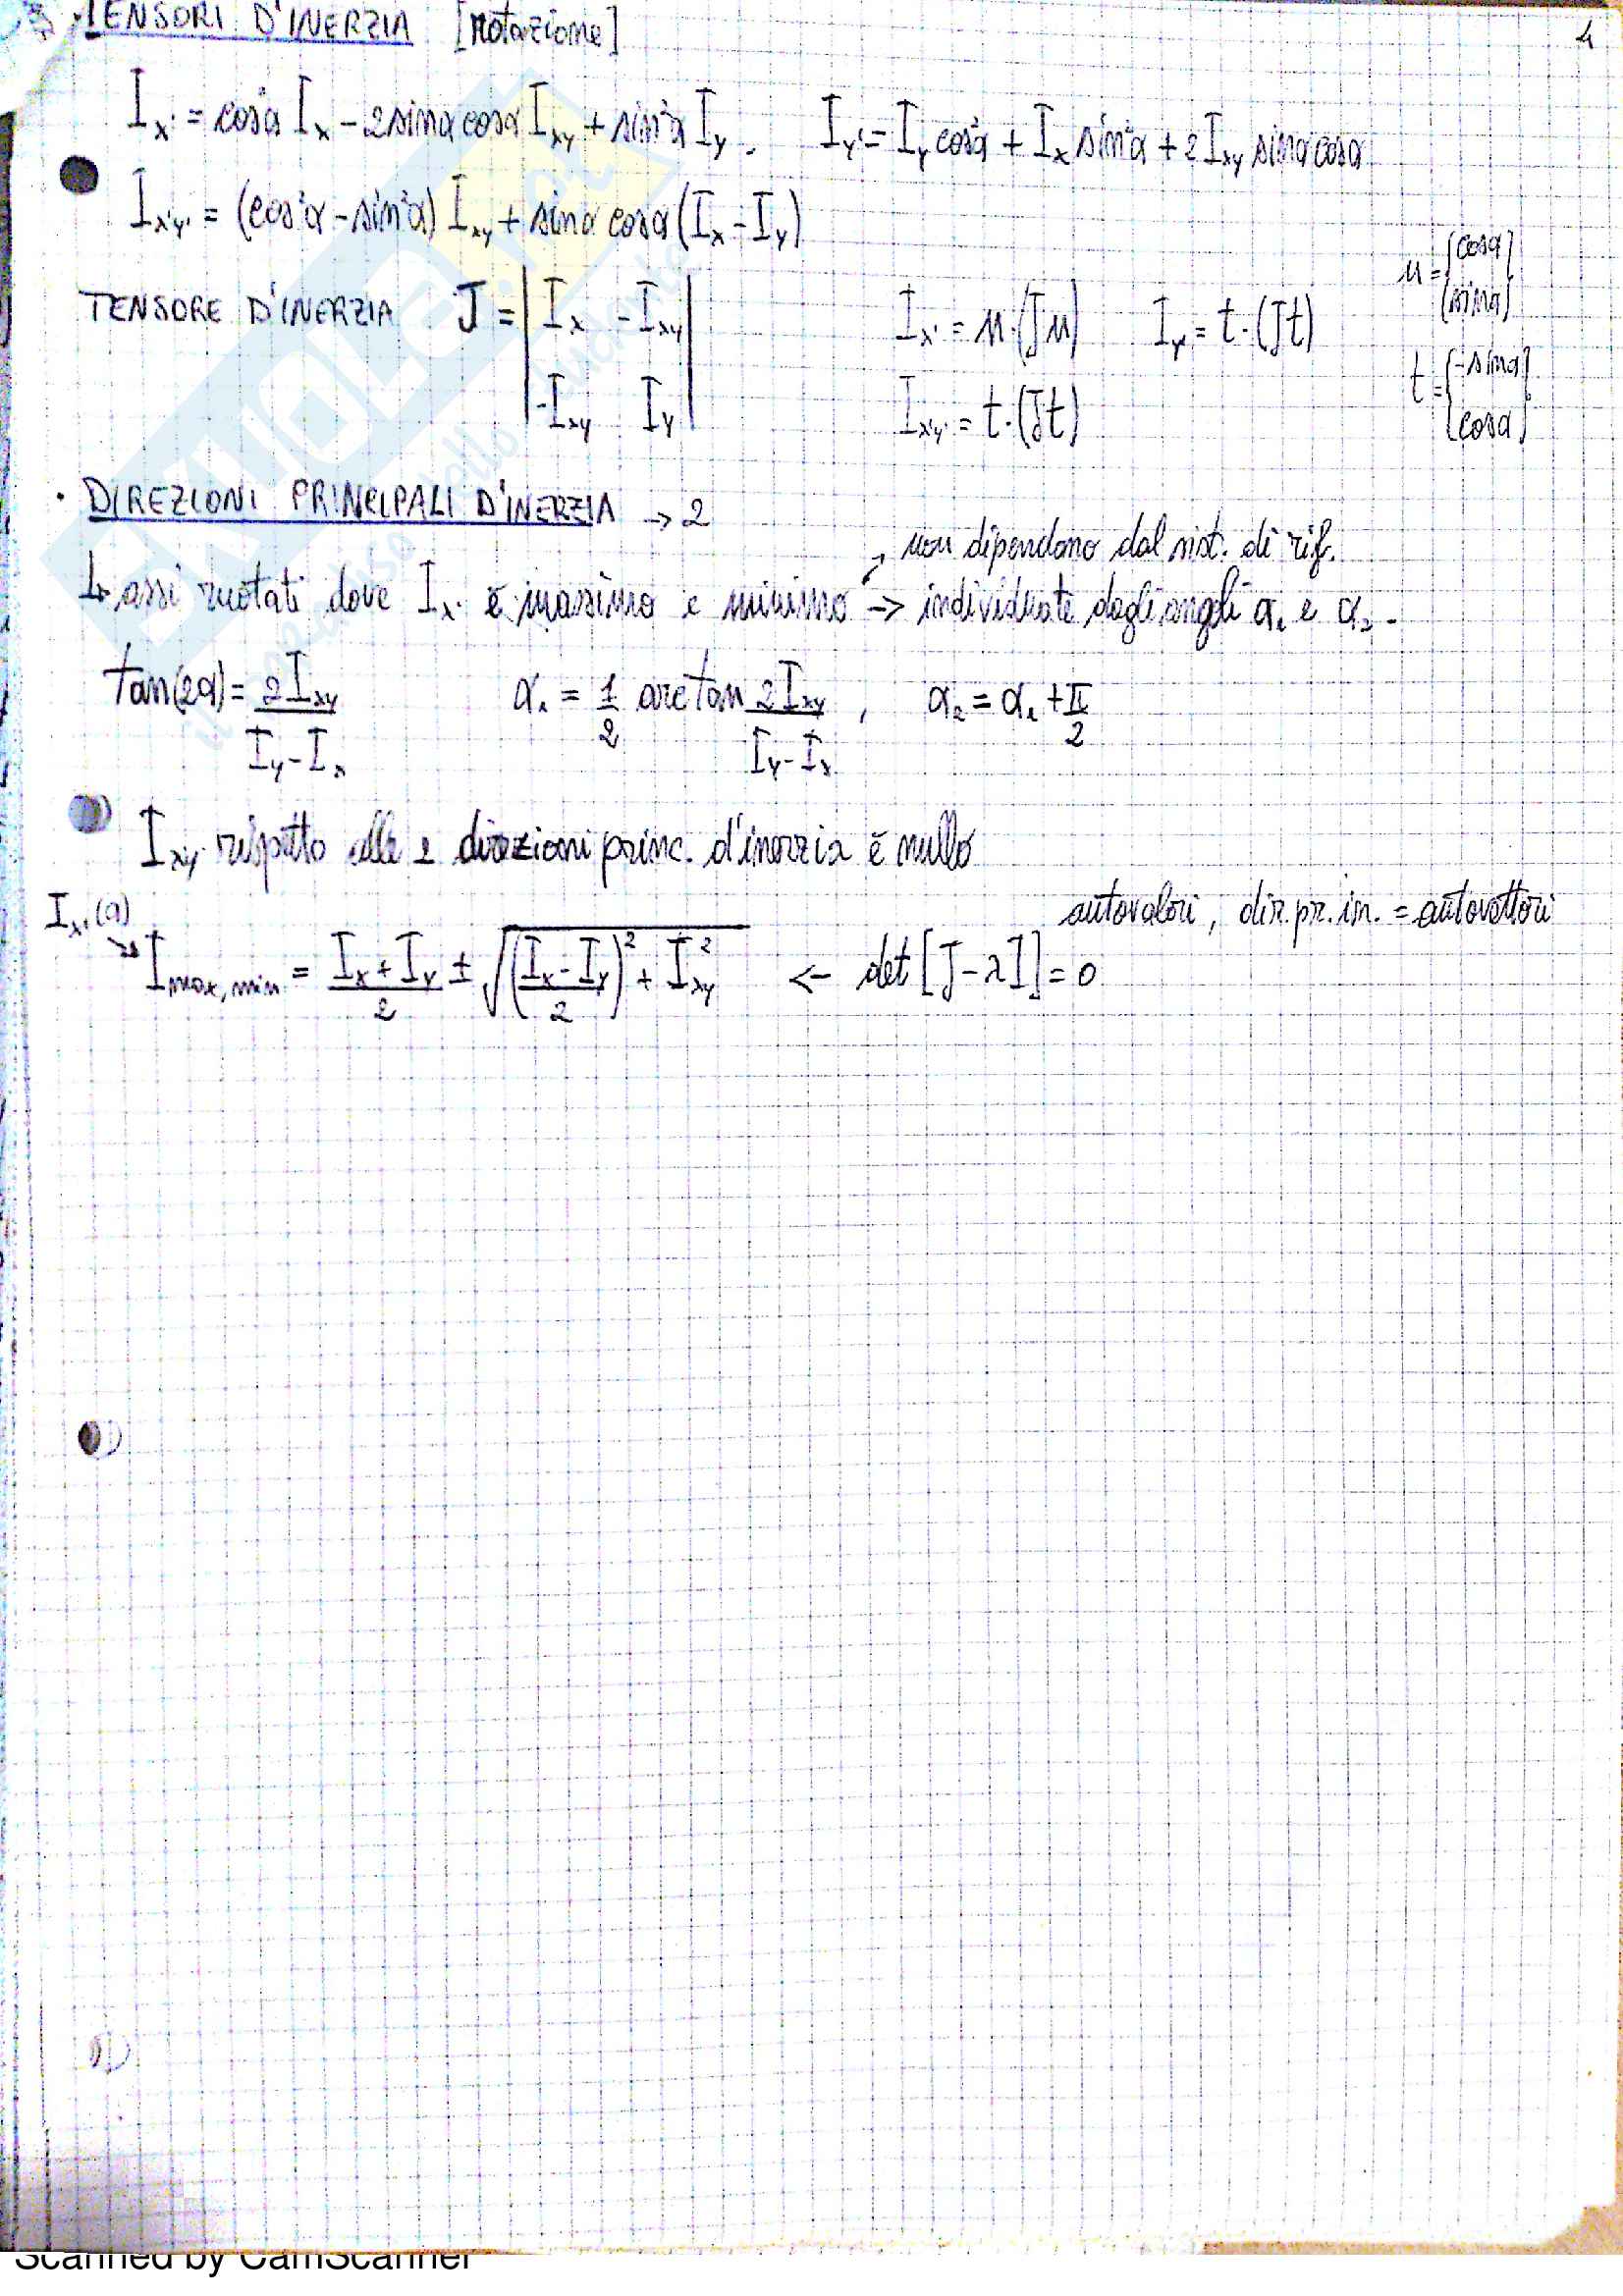 TENSORI D'INERZIA [rotazione] 4
I_x' = cos²α I_x - 2 sinα cosα I_xy + sin²α I_y . I_y' = I_y cos²α + I_x sin²α + 2 I_xy sinα cosα
I_x'y' = (cos²α - sin²α) I_xy + sinα cosα (I_x - I_y)
n = {cosα sinα}
TENSORE D'INERZIA J = | I_x -I_xy | I_x' = n·(Jn) I_y' = t·(Jt)
| -I_xy I_y | I_x'y' = t·(Jt)
t = {-sinα cosα}
· DIREZIONI PRINCIPALI D'INERZIA → 2
non dipendono dal sist. di rif.
↳ assi ruotati dove I_x' è massimo e minimo → individuate dagli angoli α₁ e α₂.
tan(2α) = 2I_xy / (I_y - I_x) α₁ = 1/2 arctan 2I_xy / (I_y - I_x) , α₂ = α₁ + π/2
I_x'y' rispetto alle 2 direzioni princ. d'inerzia è nullo
I_x'(α)
autovalori, dir. pr. in. = autovettori
↘ I_max,min = (I_x + I_y)/2 ± √(((I_x - I_y)/2)² + I_xy²) ← det[J - λI] = 0
Scanned by CamScanner